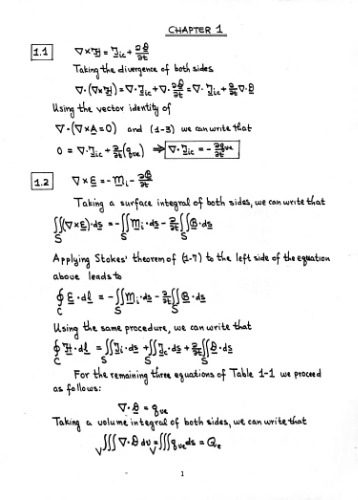 CHAPTER 1
1.1 ∇×ℋ = 𝒥ic + ∂𝒟/∂t
Taking the divergence of both sides
∇·(∇×ℋ) = ∇·𝒥ic + ∇·∂𝒟/∂t = ∇·𝒥ic + ∂/∂t ∇·𝒟
Using the vector identity of
∇·(∇×A=0) and (1-3) we can write that
0 = ∇·𝒥ic + ∂/∂t(qve) ⇒ ∇·𝒥ic = -∂qve/∂t
1.2 ∇×ℰ = -ℳi - ∂ℬ/∂t
Taking a surface integral of both sides, we can write that
∬S(∇×ℰ)·ds = -∬Sℳi·ds - ∂/∂t∬Sℬ·ds
Applying Stokes' theorem of (1-7) to the left side of the equation
above leads to
∮C ℰ·dl = -∬Sℳi·ds - ∂/∂t∬Sℬ·ds
Using the same procedure, we can write that
∮C ℋ·dl = ∬S𝒥i·ds + ∬S𝒥c·ds + ∂/∂t∬S𝒟·ds
For the remaining three equations of Table 1-1 we proceed
as follows:
∇·𝒟 = qve
Taking a volume integral of both sides, we can write that
∭V ∇·𝒟 dv = ∭V qve ds = Qe
1